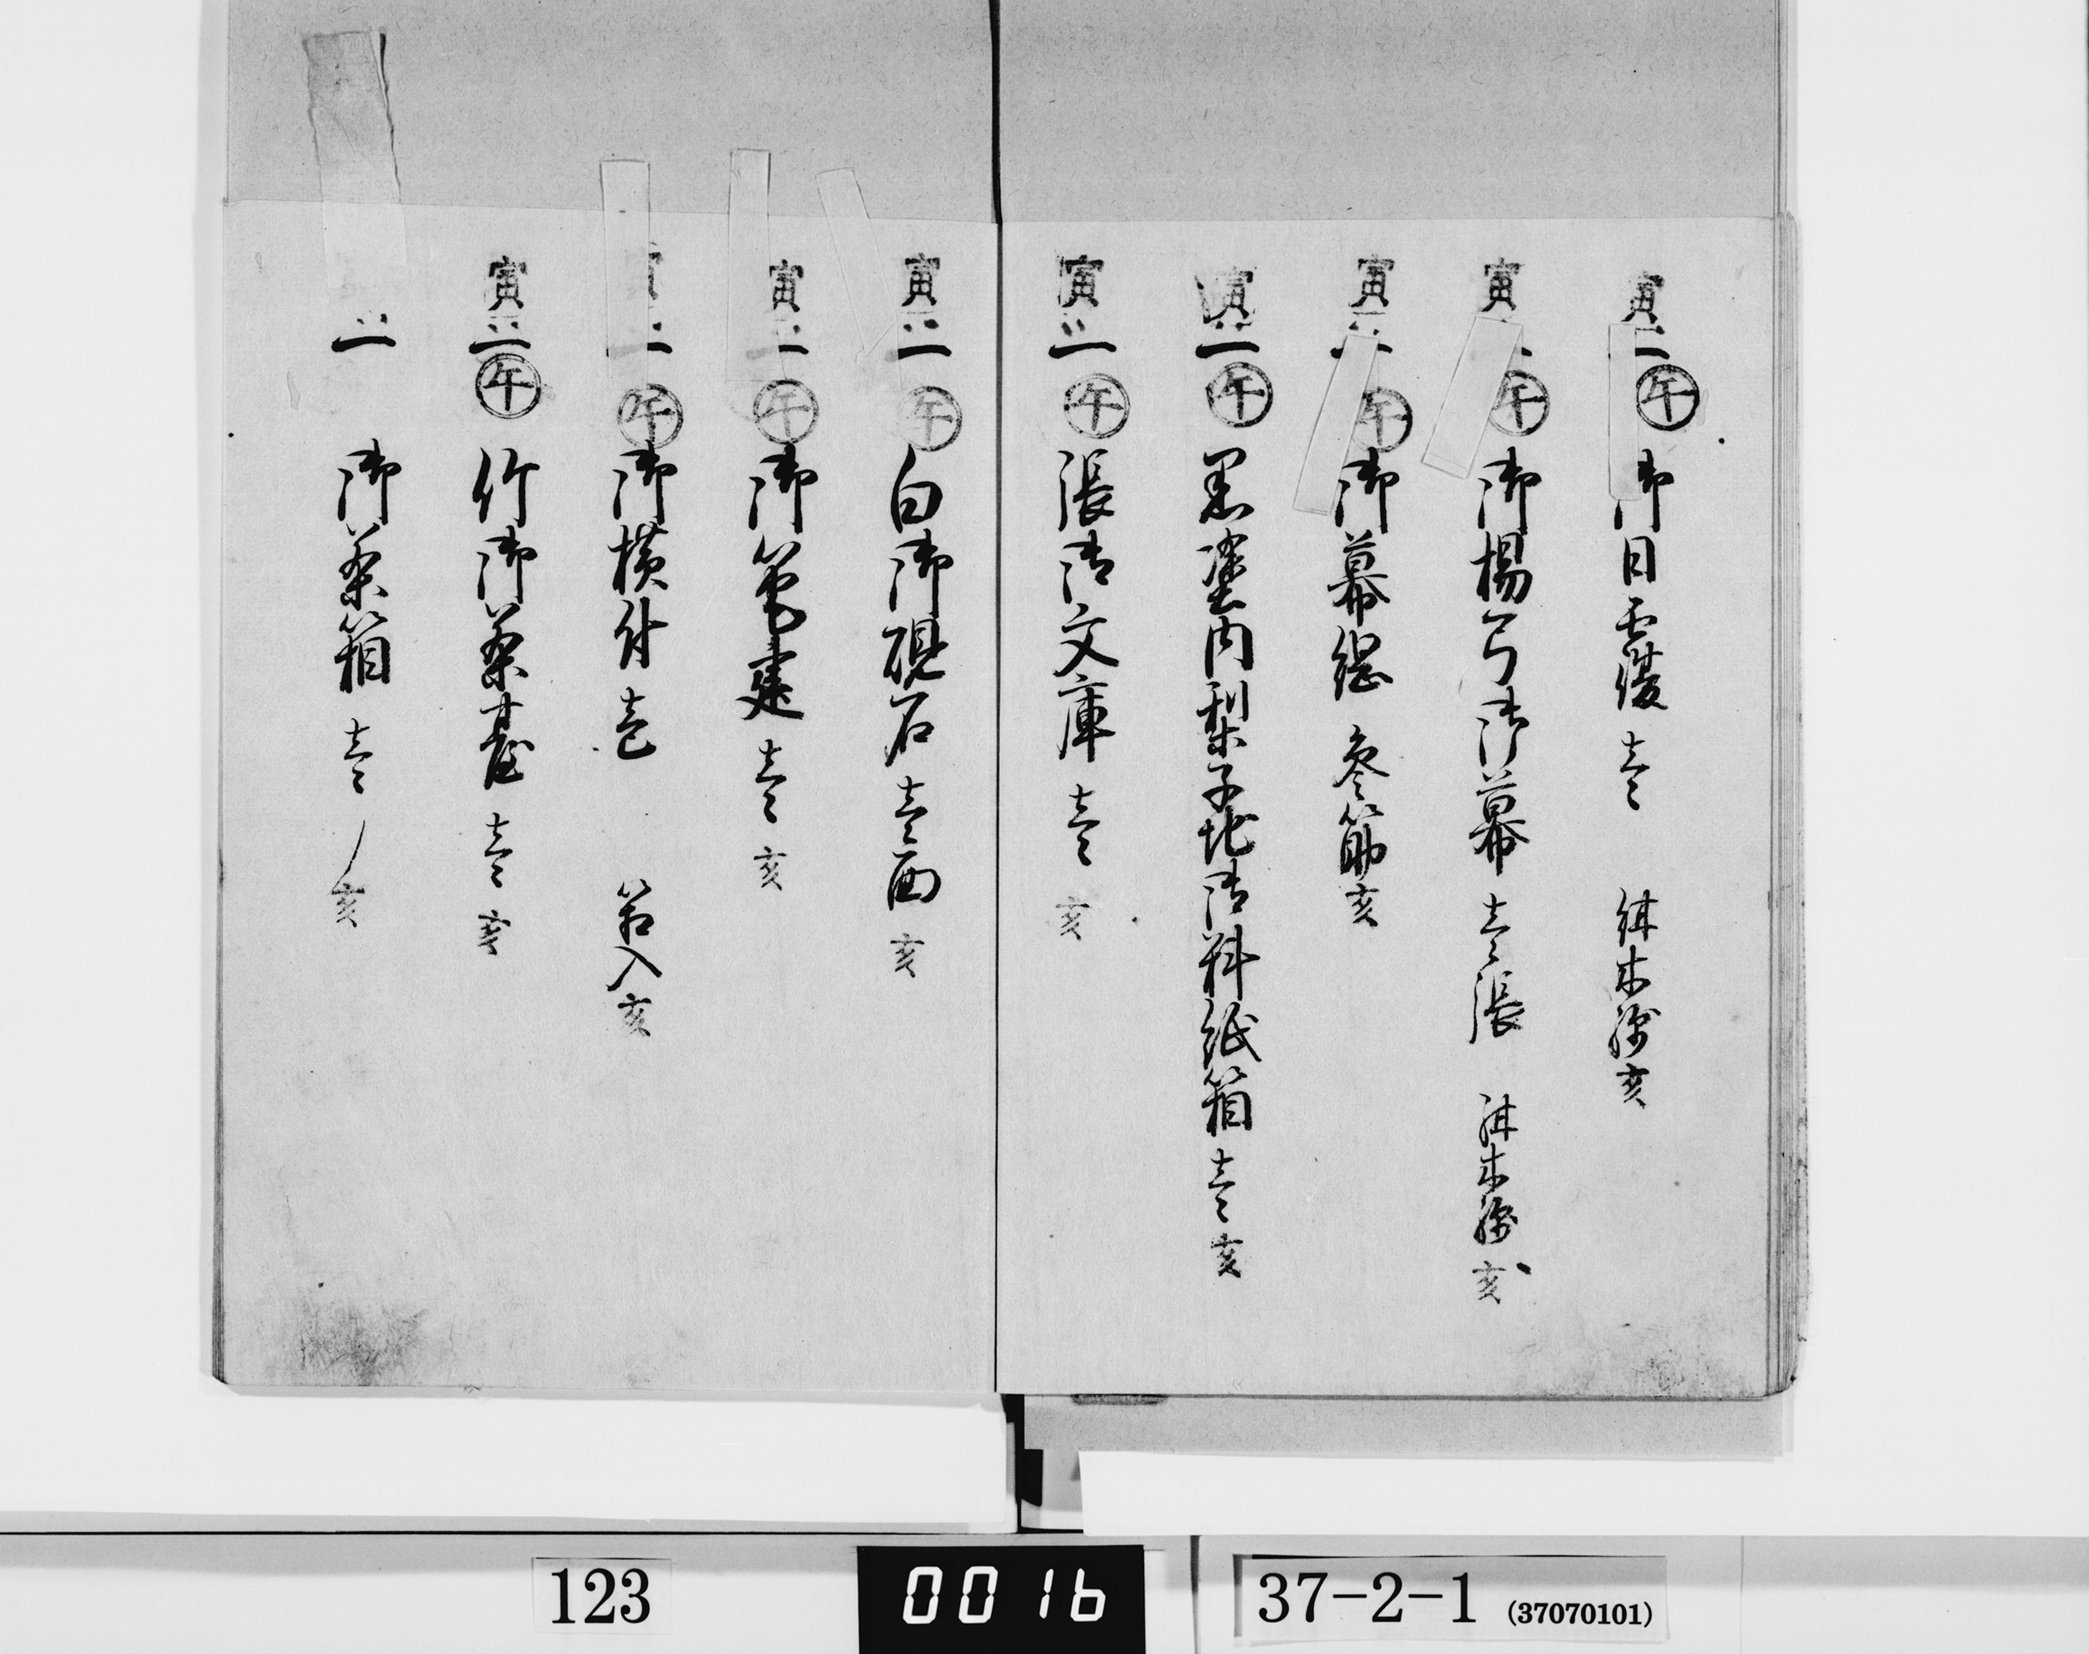 寅 一 午 御日雲覆 壱ツ 糾木綿 亥
寅 一 午 御楊弓御幕 壱ツ張 糾木綿 亥
寅 一 午 御幕綱 参筋 亥
寅 一 午 黒塗内梨子地御料紙箱 壱ツ 亥
寅 一 午 張御文庫 壱ツ 亥
寅 一 午 白御硯石 壱ツ面 亥
寅 一 午 御筆建 壱ツ 亥
寅 一 午 御横付 壱 箱入 亥
寅 一 午 竹御薬台 壱ツ 亥
一 御薬箱 壱ツ 亥
123
0016
37-2-1 (37070101)